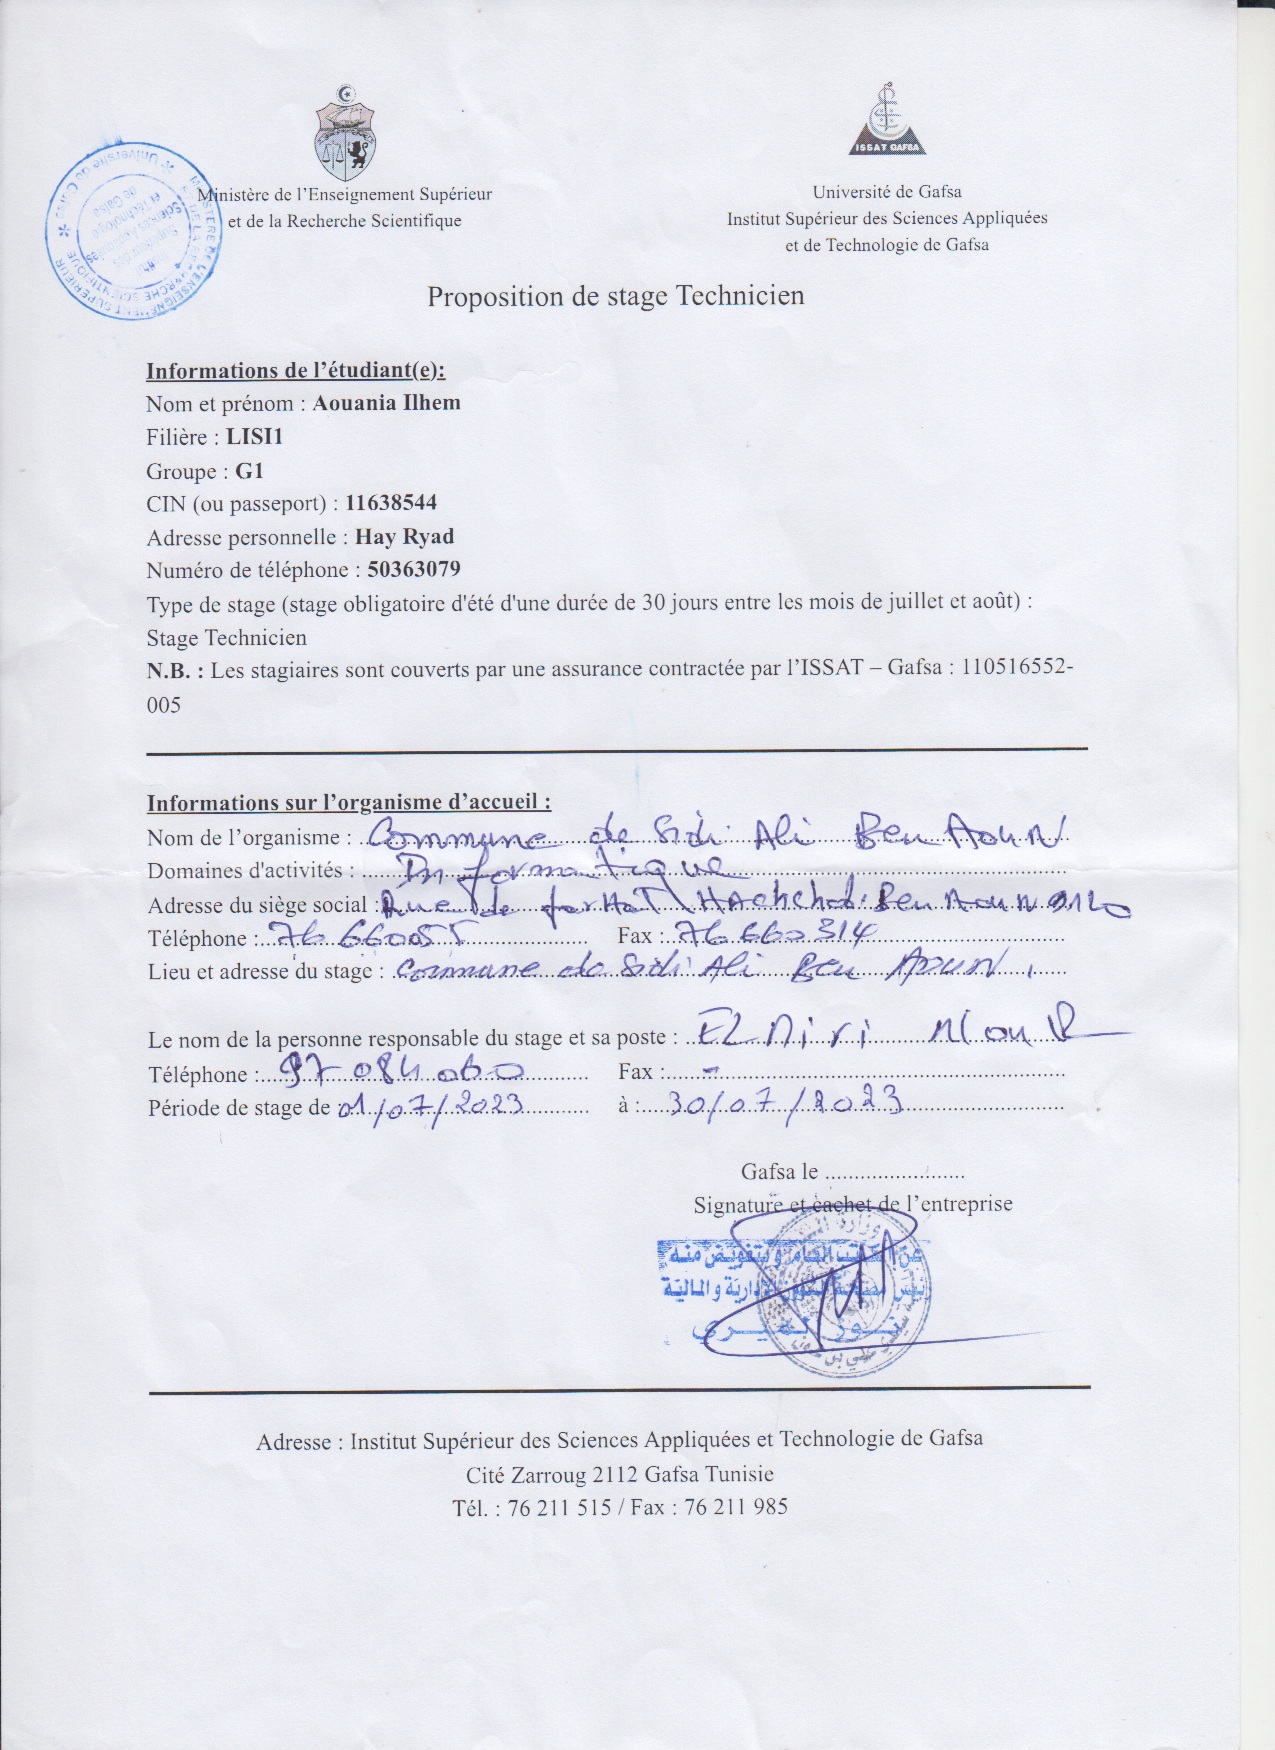 Ministère de l'Enseignement Supérieur
et de la Recherche Scientifique
ISSAT GAFSA
Université de Gafsa
Institut Supérieur des Sciences Appliquées
et de Technologie de Gafsa
Proposition de stage Technicien
Informations de l'étudiant(e):
Nom et prénom : Aouania Ilhem
Filière : LISI1
Groupe : G1
CIN (ou passeport) : 11638544
Adresse personnelle : Hay Ryad
Numéro de téléphone : 50363079
Type de stage (stage obligatoire d'été d'une durée de 30 jours entre les mois de juillet et août) :
Stage Technicien
N.B. : Les stagiaires sont couverts par une assurance contractée par l'ISSAT – Gafsa : 110516552-
005
Informations sur l'organisme d'accueil :
Nom de l'organisme : Commune de Sidi Ali Ben Aoun
Domaines d'activités : Informatique
Adresse du siège social : Rue de farhat Hachched Ben Aoun
Téléphone : 76 660055 Fax : 76 660 314
Lieu et adresse du stage : Commune de Sidi Ali Ben Aoun
Le nom de la personne responsable du stage et sa poste :
Téléphone : 97 084 060 Fax : -
Période de stage de 01/07/2023 à : 30/07/2023
Gafsa le ........................
Signature et cachet de l'entreprise
عن الكاتب العام وبتفويض منه
رئيس مصلحة الشؤون الإدارية والمالية
Adresse : Institut Supérieur des Sciences Appliquées et Technologie de Gafsa
Cité Zarroug 2112 Gafsa Tunisie
Tél. : 76 211 515 / Fax : 76 211 985